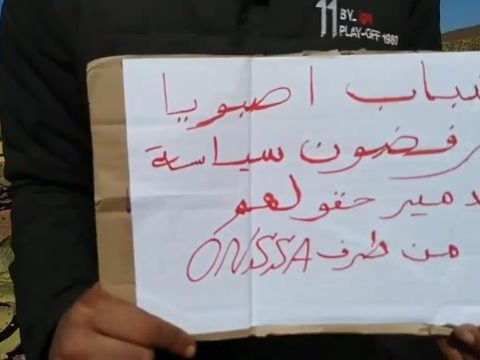 11 BY_
PLAY-OFF 1980
شباب اصبويا
يرفضون سياسة
تدمير حقولهم
من طرف ONSSA